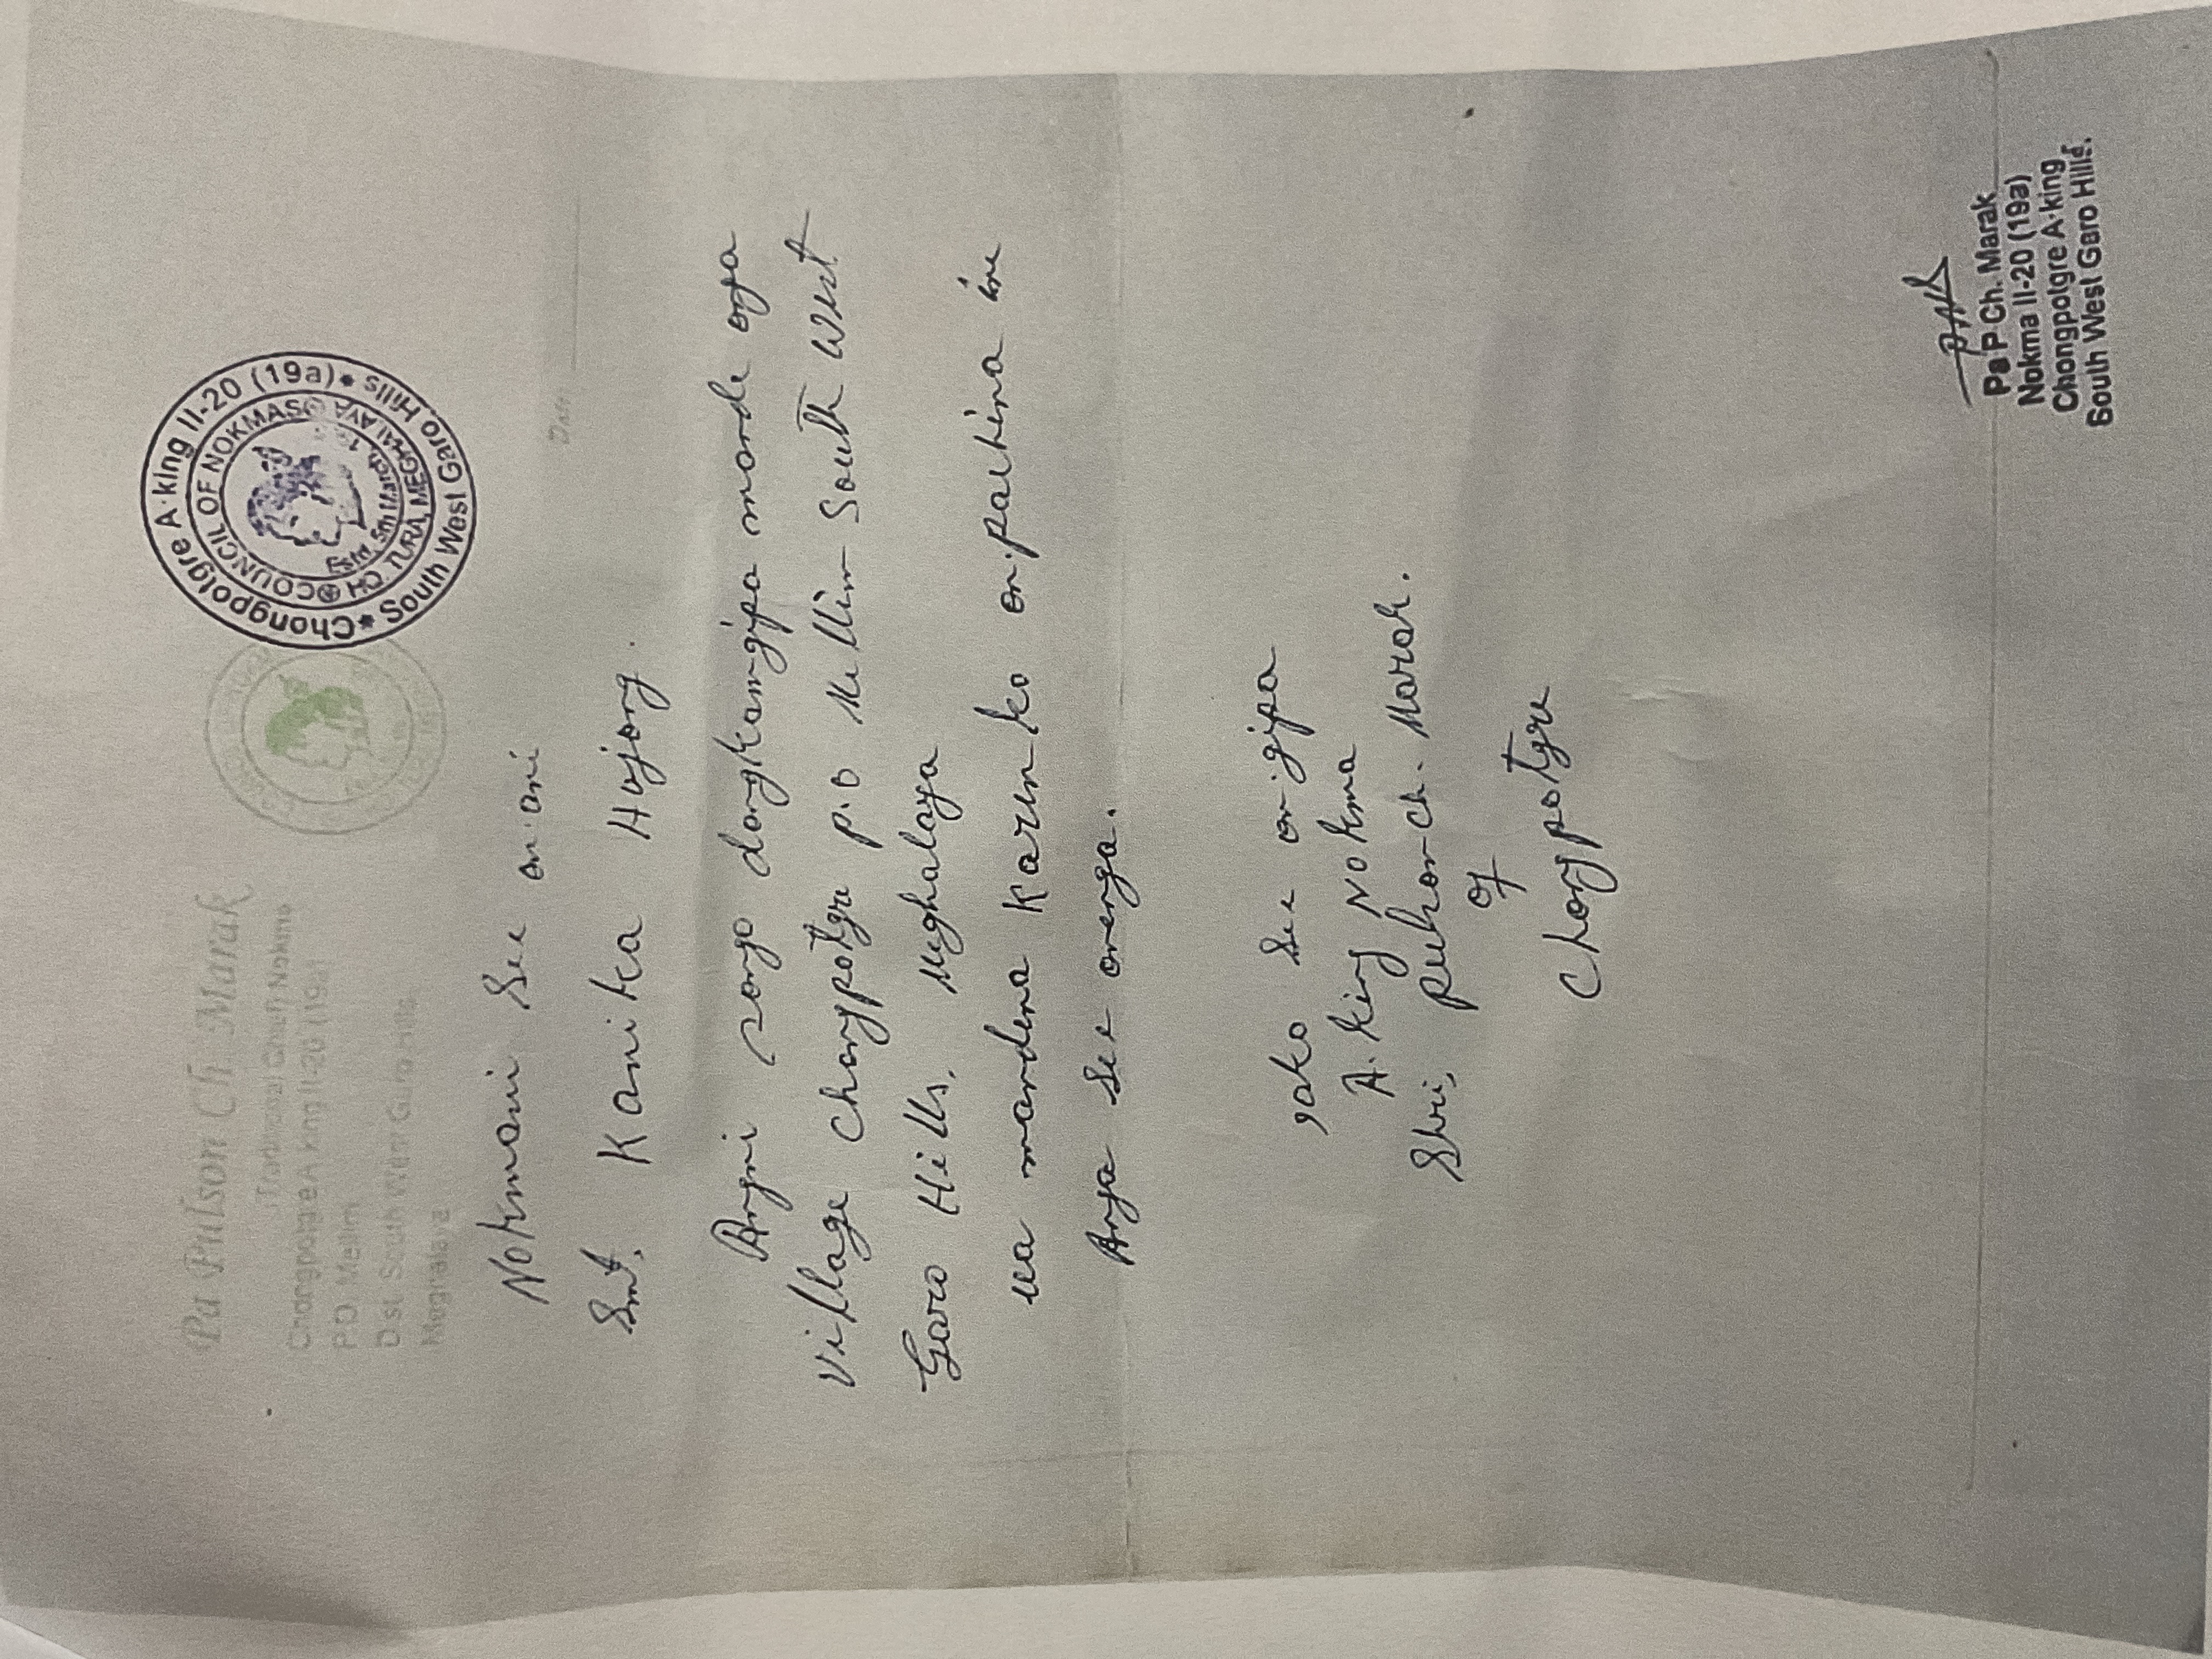 Pa Pulson Ch. Marak
(Traditional Chief) Nokma
Chongpotgre A'king II-20 (19a)
P.O. Mellim
Dist. South West Garo Hills,
Meghalaya
Chongpotgre A·king II-20 (19a)
South West Garo Hills
COUNCIL OF NOKMAS
HQ. TURA, MEGHALAYA
Estd. 5th March
Date
Nokmani See on·ani
Smt. Kanika Hajong.
Angni songo dongkamgipa mande oya
Village Chongpotgre P.O Mellim South West
Garo Hills, Meghalaya
ua mandena Karen-ko on·pachina ine
Anga See onenga.
Iako See on·gipa
A·king Nokma
Shri, Ch. Marak.
of
Chongpotgre
Pa P Ch. Marak
Nokma II-20 (19a)
Chongpotgre A·king
South West Garo Hills.